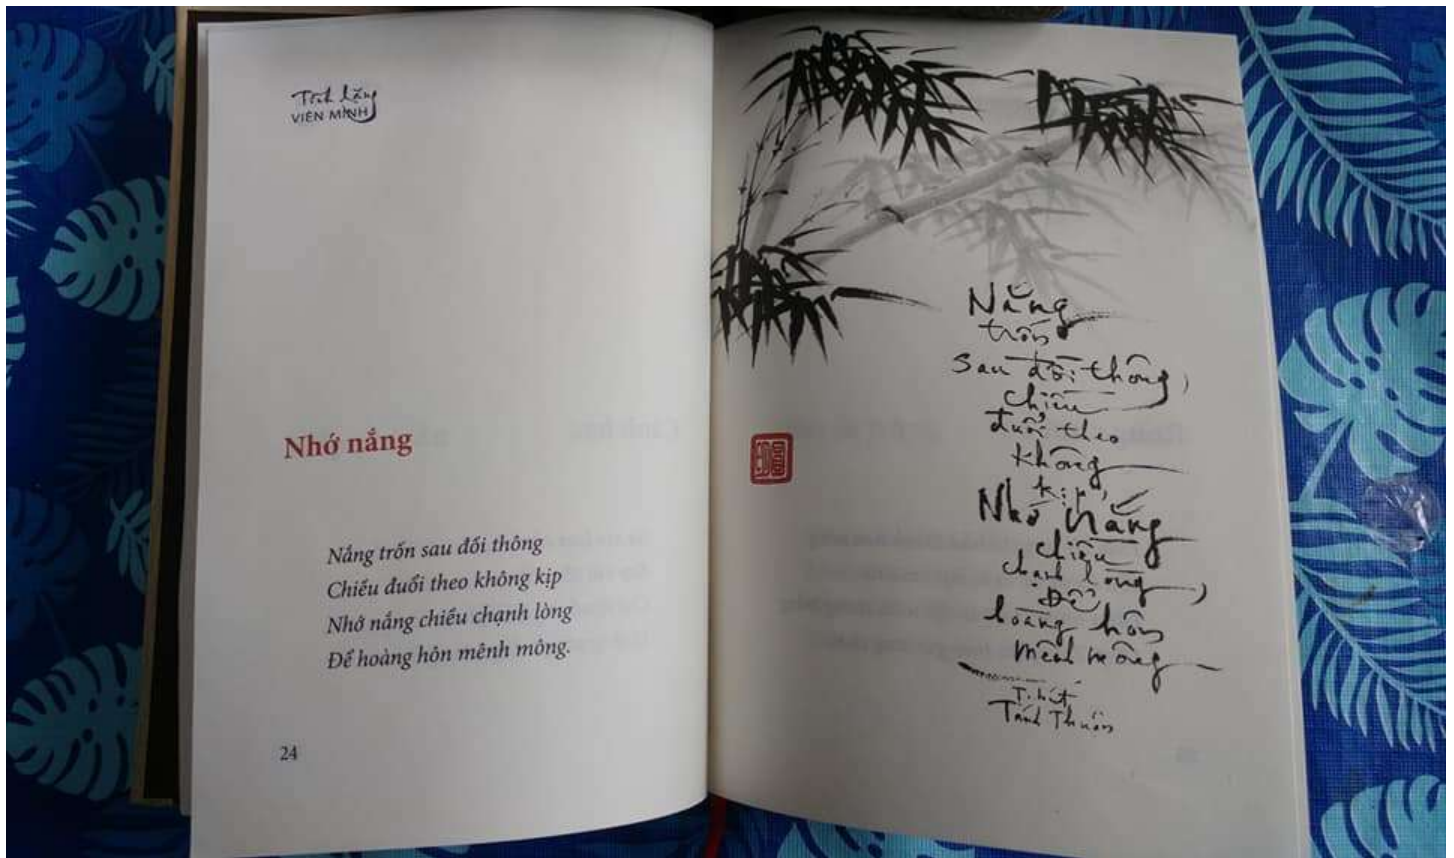 Tĩnh lặng
VIÊN MINH
Nhớ nắng
Nắng trốn sau đồi thông
Chiều đuổi theo không kịp
Nhớ nắng chiều chạnh lòng
Để hoàng hôn mênh mông.
24
Nắng
trốn
sau đồi thông,
chiều
đuổi theo
không
kịp,
Nhớ nắng
chiều
chạnh lòng,
Để
hoàng hôn
mênh mông
T.bút